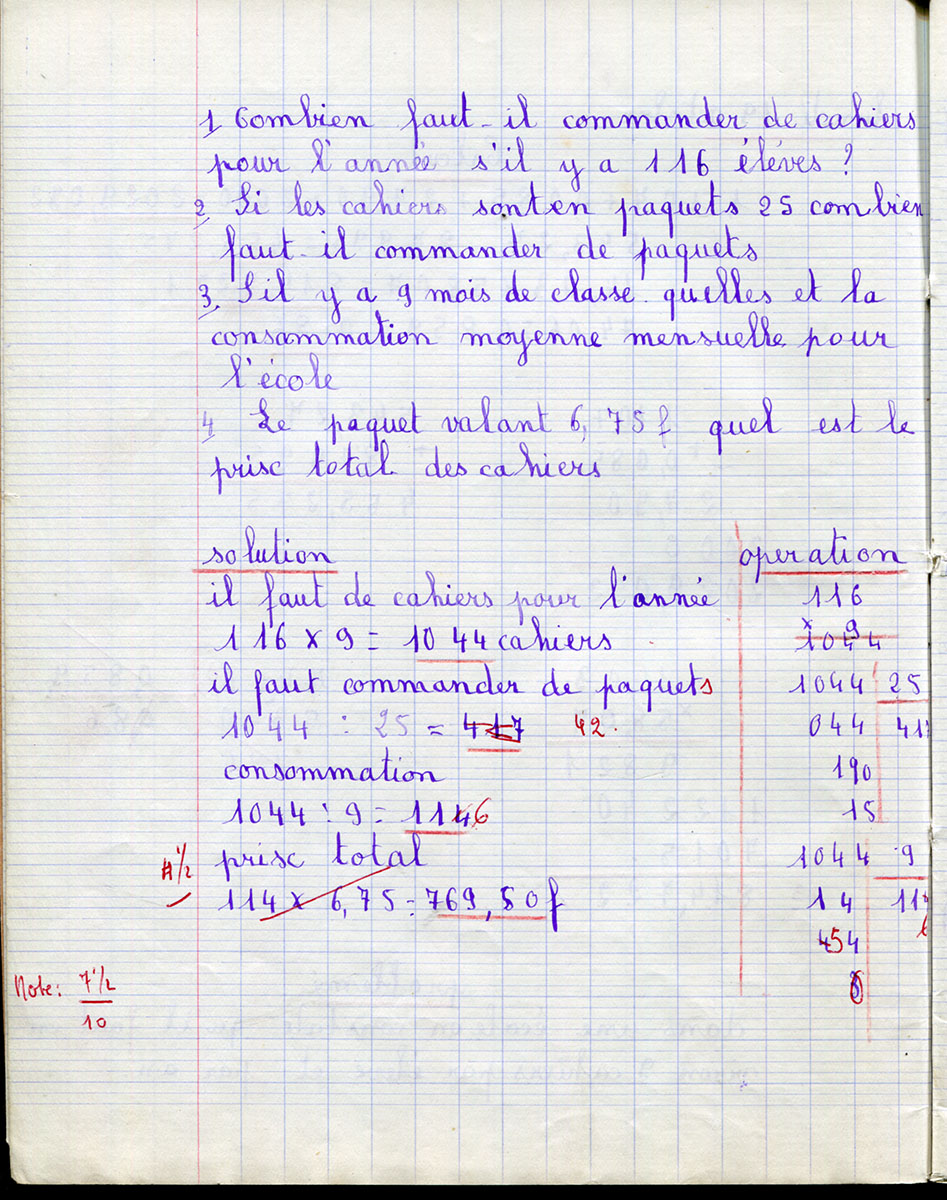 1 Combien faut-il commander de cahiers
pour l'année s'il y a 116 éléves ?
2 Si les cahiers sont en paquets 25 combien
faut-il commander de paquets
3. S'il y a 9 mois de classe. quelles et la
consammation moyenne mensuelle pour
l'école
4 Le paquet valant 6,75f quel est le
prisc total des cahiers
solution
operation
il faut de cahiers pour l'année
116
116 x 9 = 1044 cahiers
x 9
1044
il faut commander de paquets
1044 25
1044 : 25 = 417 42.
044 417
consommation
190
1044 : 9 = 1146
15
1/2 prisc total
1044 9
114 x 6,75 = 769,50f
14 114
454
6
Note: 7 1/2
10